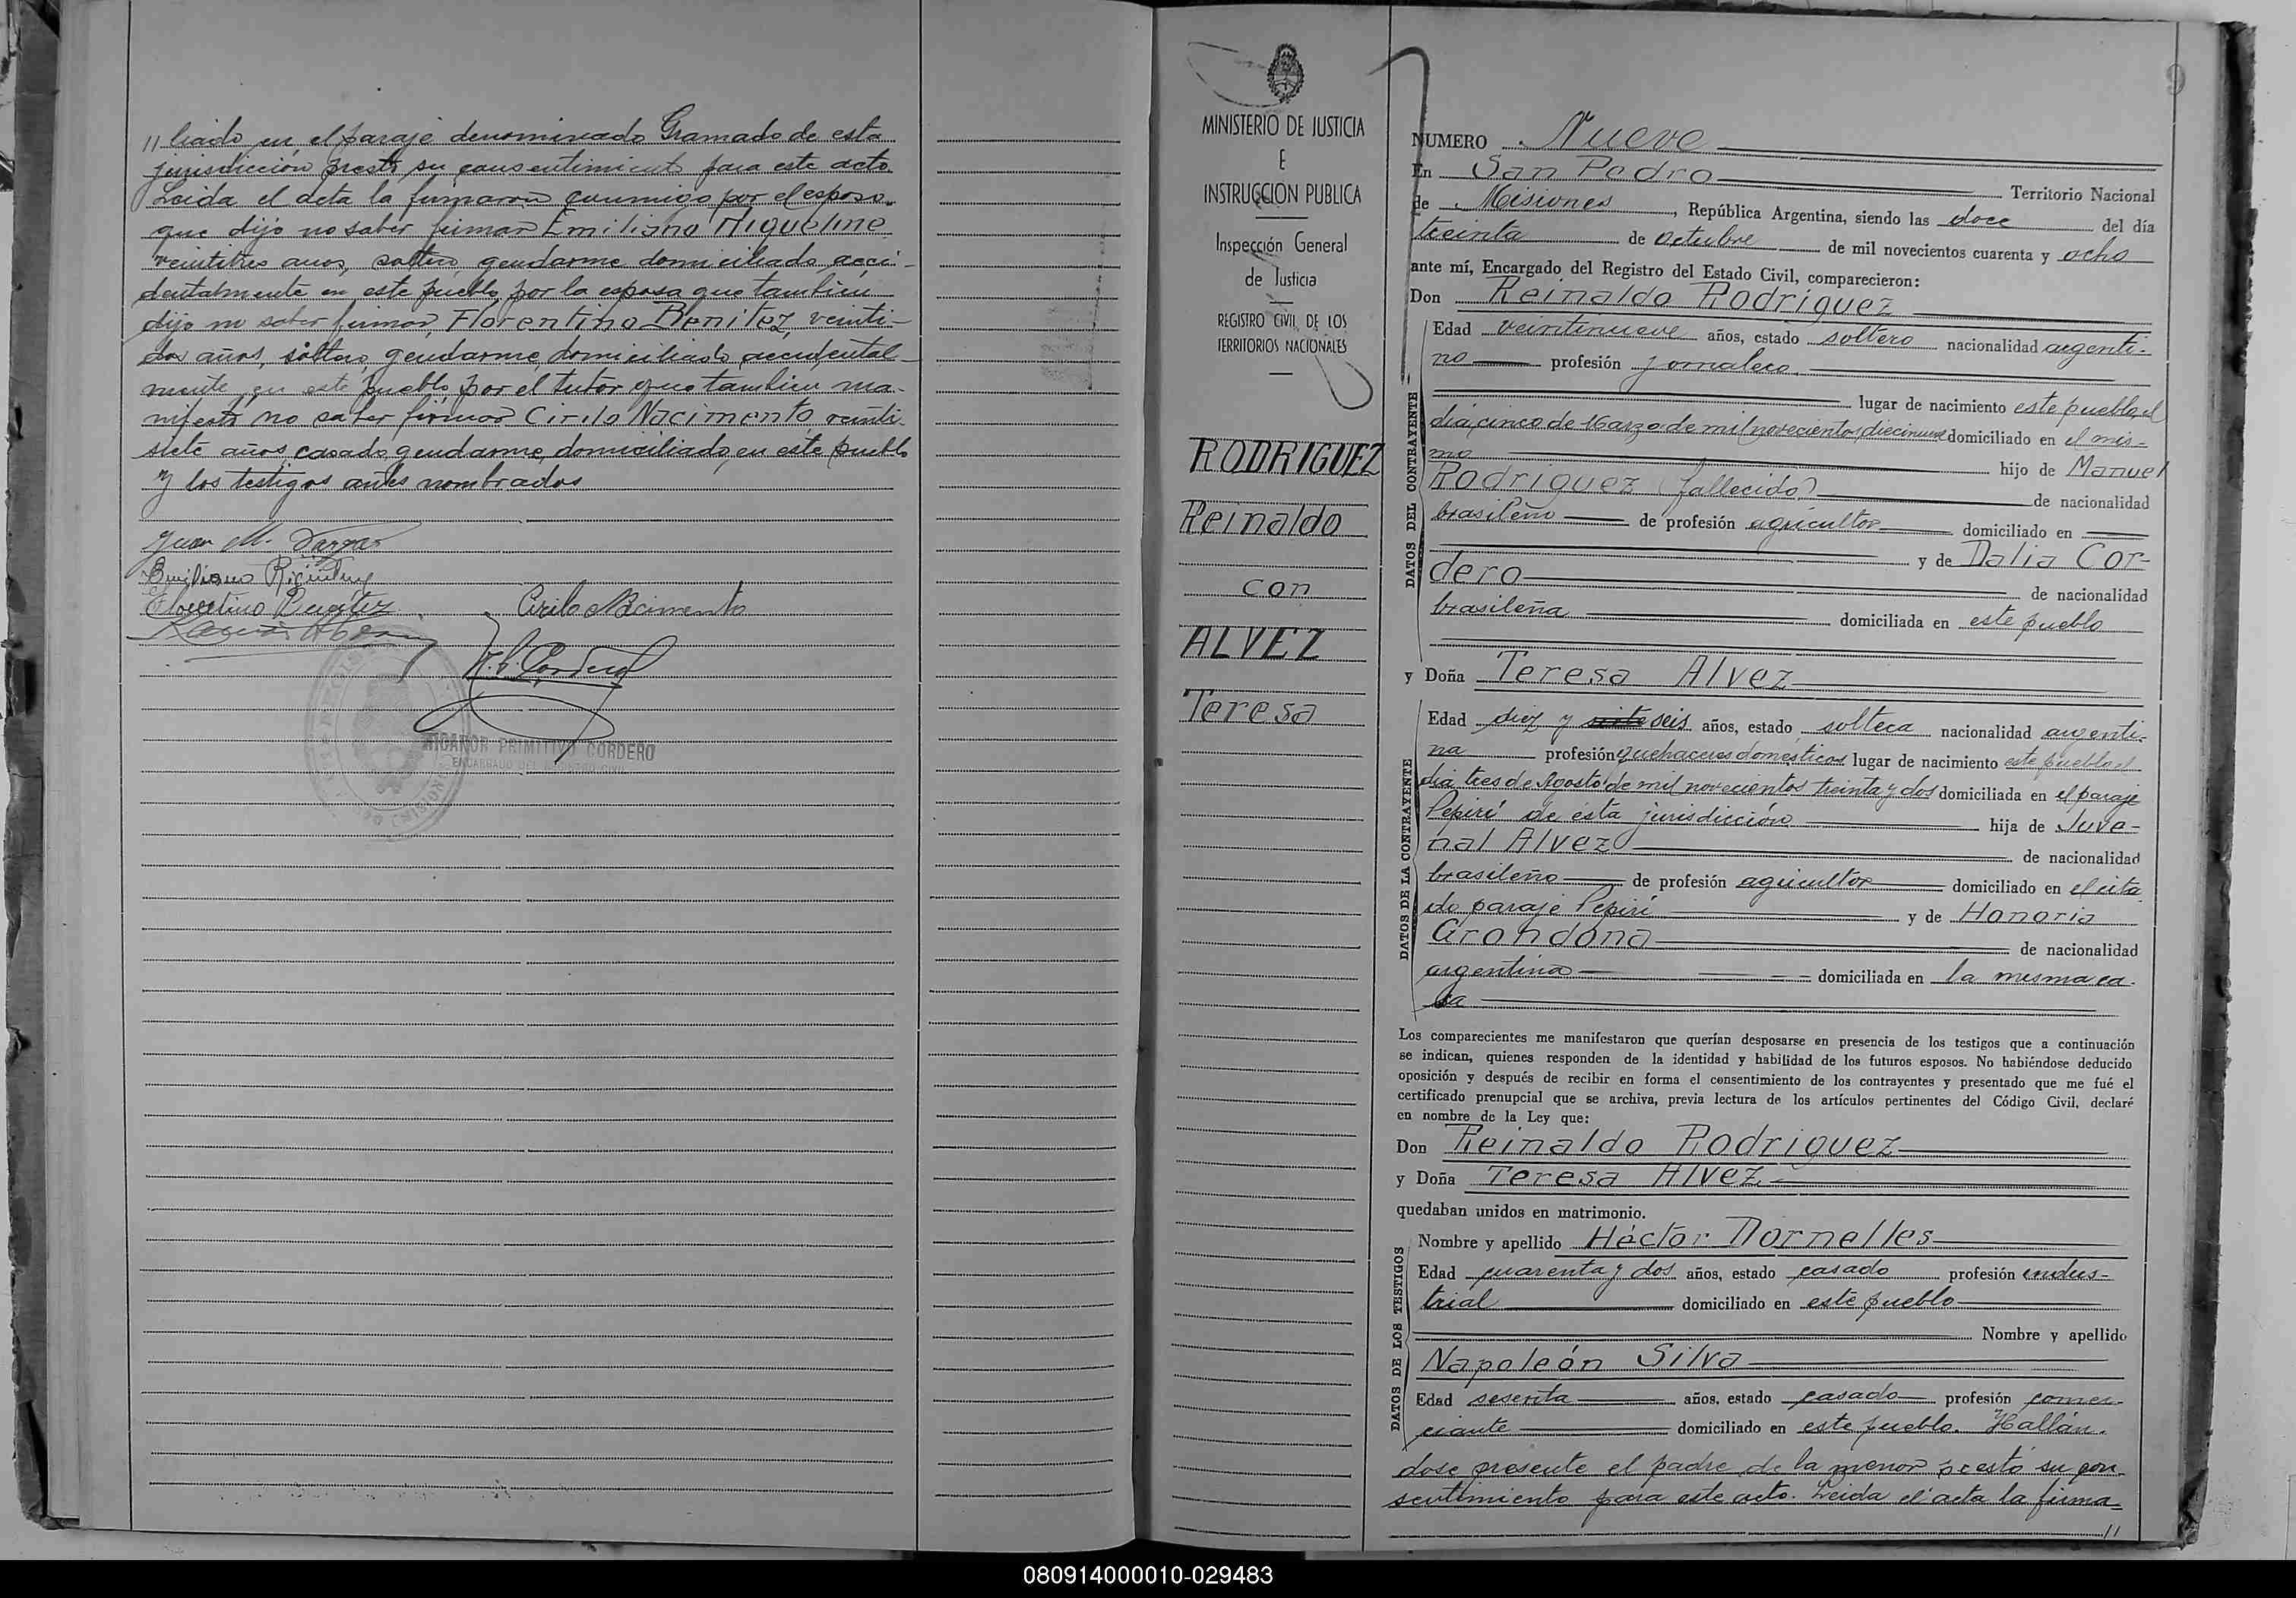 // liado en el paraje denominado Gramado de esta
jurisdicción prestó su consentimiento para este acto.
Leida el acta la firmaron conmigo por el esposo
que dijo no saber firmar Emiliano Riquelme
veintitres años, soltero, gendarme domiciliado acci-
dentalmente en este pueblo, por la esposa que tambien
dijo no saber firmar, Florentino Benitez, veinti-
dos años, soltero, gendarme, domiciliado accidental-
mente en este pueblo, por el tutor que tambien ma-
nifestó no saber firmar Cirilo Nacimento, veinti-
siete años, casado, gendarme, domiciliado en este pueblo
y los testigos antes nombrados
Juan M. Vargas
Emiliano Riquelme
Florentino Benitez Cirilo Nacimento
N. P. Cordero
NICANOR PRIMITIVO CORDERO
ENCARGADO DEL REGISTRO CIVIL
MINISTERIO DE JUSTICIA
E
INSTRUCCION PUBLICA
Inspección General
de Justicia
REGISTRO CIVIL DE LOS
TERRITORIOS NACIONALES
RODRIGUEZ
Reinaldo
con
ALVEZ
Teresa
9
NUMERO Nueve
En San Pedro Territorio Nacional
de Misiones, República Argentina, siendo las doce del día
treinta de Octubre de mil novecientos cuarenta y ocho
ante mí, Encargado del Registro del Estado Civil, comparecieron:
Don Reinaldo Rodriguez
DATOS DEL CONTRAYENTE
Edad veintinueve años, estado soltero nacionalidad argenti-
no profesión jornalero
lugar de nacimiento este pueblo, el
día cinco de Marzo de mil novecientos diecinueve domiciliado en el mis-
mo hijo de Manuel
Rodriguez (fallecido) de nacionalidad
brasileño de profesión agricultor domiciliado en
y de Dalia Cor-
dero de nacionalidad
brasileña domiciliada en este pueblo
y Doña Teresa Alvez
DATOS DE LA CONTRAYENTE
Edad diez y siete seis años, estado soltera nacionalidad argenti-
na profesión quehaceres domesticos lugar de nacimiento este pueblo el
día tres de Agosto de mil novecientos treinta y dos domiciliada en el paraje
Pepirí de ésta jurisdicción hija de Juve-
nal Alvez de nacionalidad
brasileño de profesión agricultor domiciliado en el cita
do paraje Pepirí y de Honoria
Grondona de nacionalidad
argentina domiciliada en la misma ca-
sa
Los comparecientes me manifestaron que querían desposarse en presencia de los testigos que a continuación
se indican, quienes responden de la identidad y habilidad de los futuros esposos. No habiéndose deducido
oposición y después de recibir en forma el consentimiento de los contrayentes y presentado que me fué el
certificado prenupcial que se archiva, previa lectura de los artículos pertinentes del Código Civil, declaré
en nombre de la Ley que:
Don Reinaldo Rodriguez
y Doña Teresa Alvez
quedaban unidos en matrimonio.
DATOS DE LOS TESTIGOS
Nombre y apellido Héctor Dornelles
Edad cuarenta y dos años, estado casado profesión indus-
trial domiciliado en este pueblo
Nombre y apellido
Napoleón Silva
Edad sesenta años, estado casado profesión comer-
ciante domiciliado en este pueblo. Hallán-
dose presente el padre de la menor prestó su con-
sentimiento para este acto. Leida el acta la firma-
//
080914000010-029483